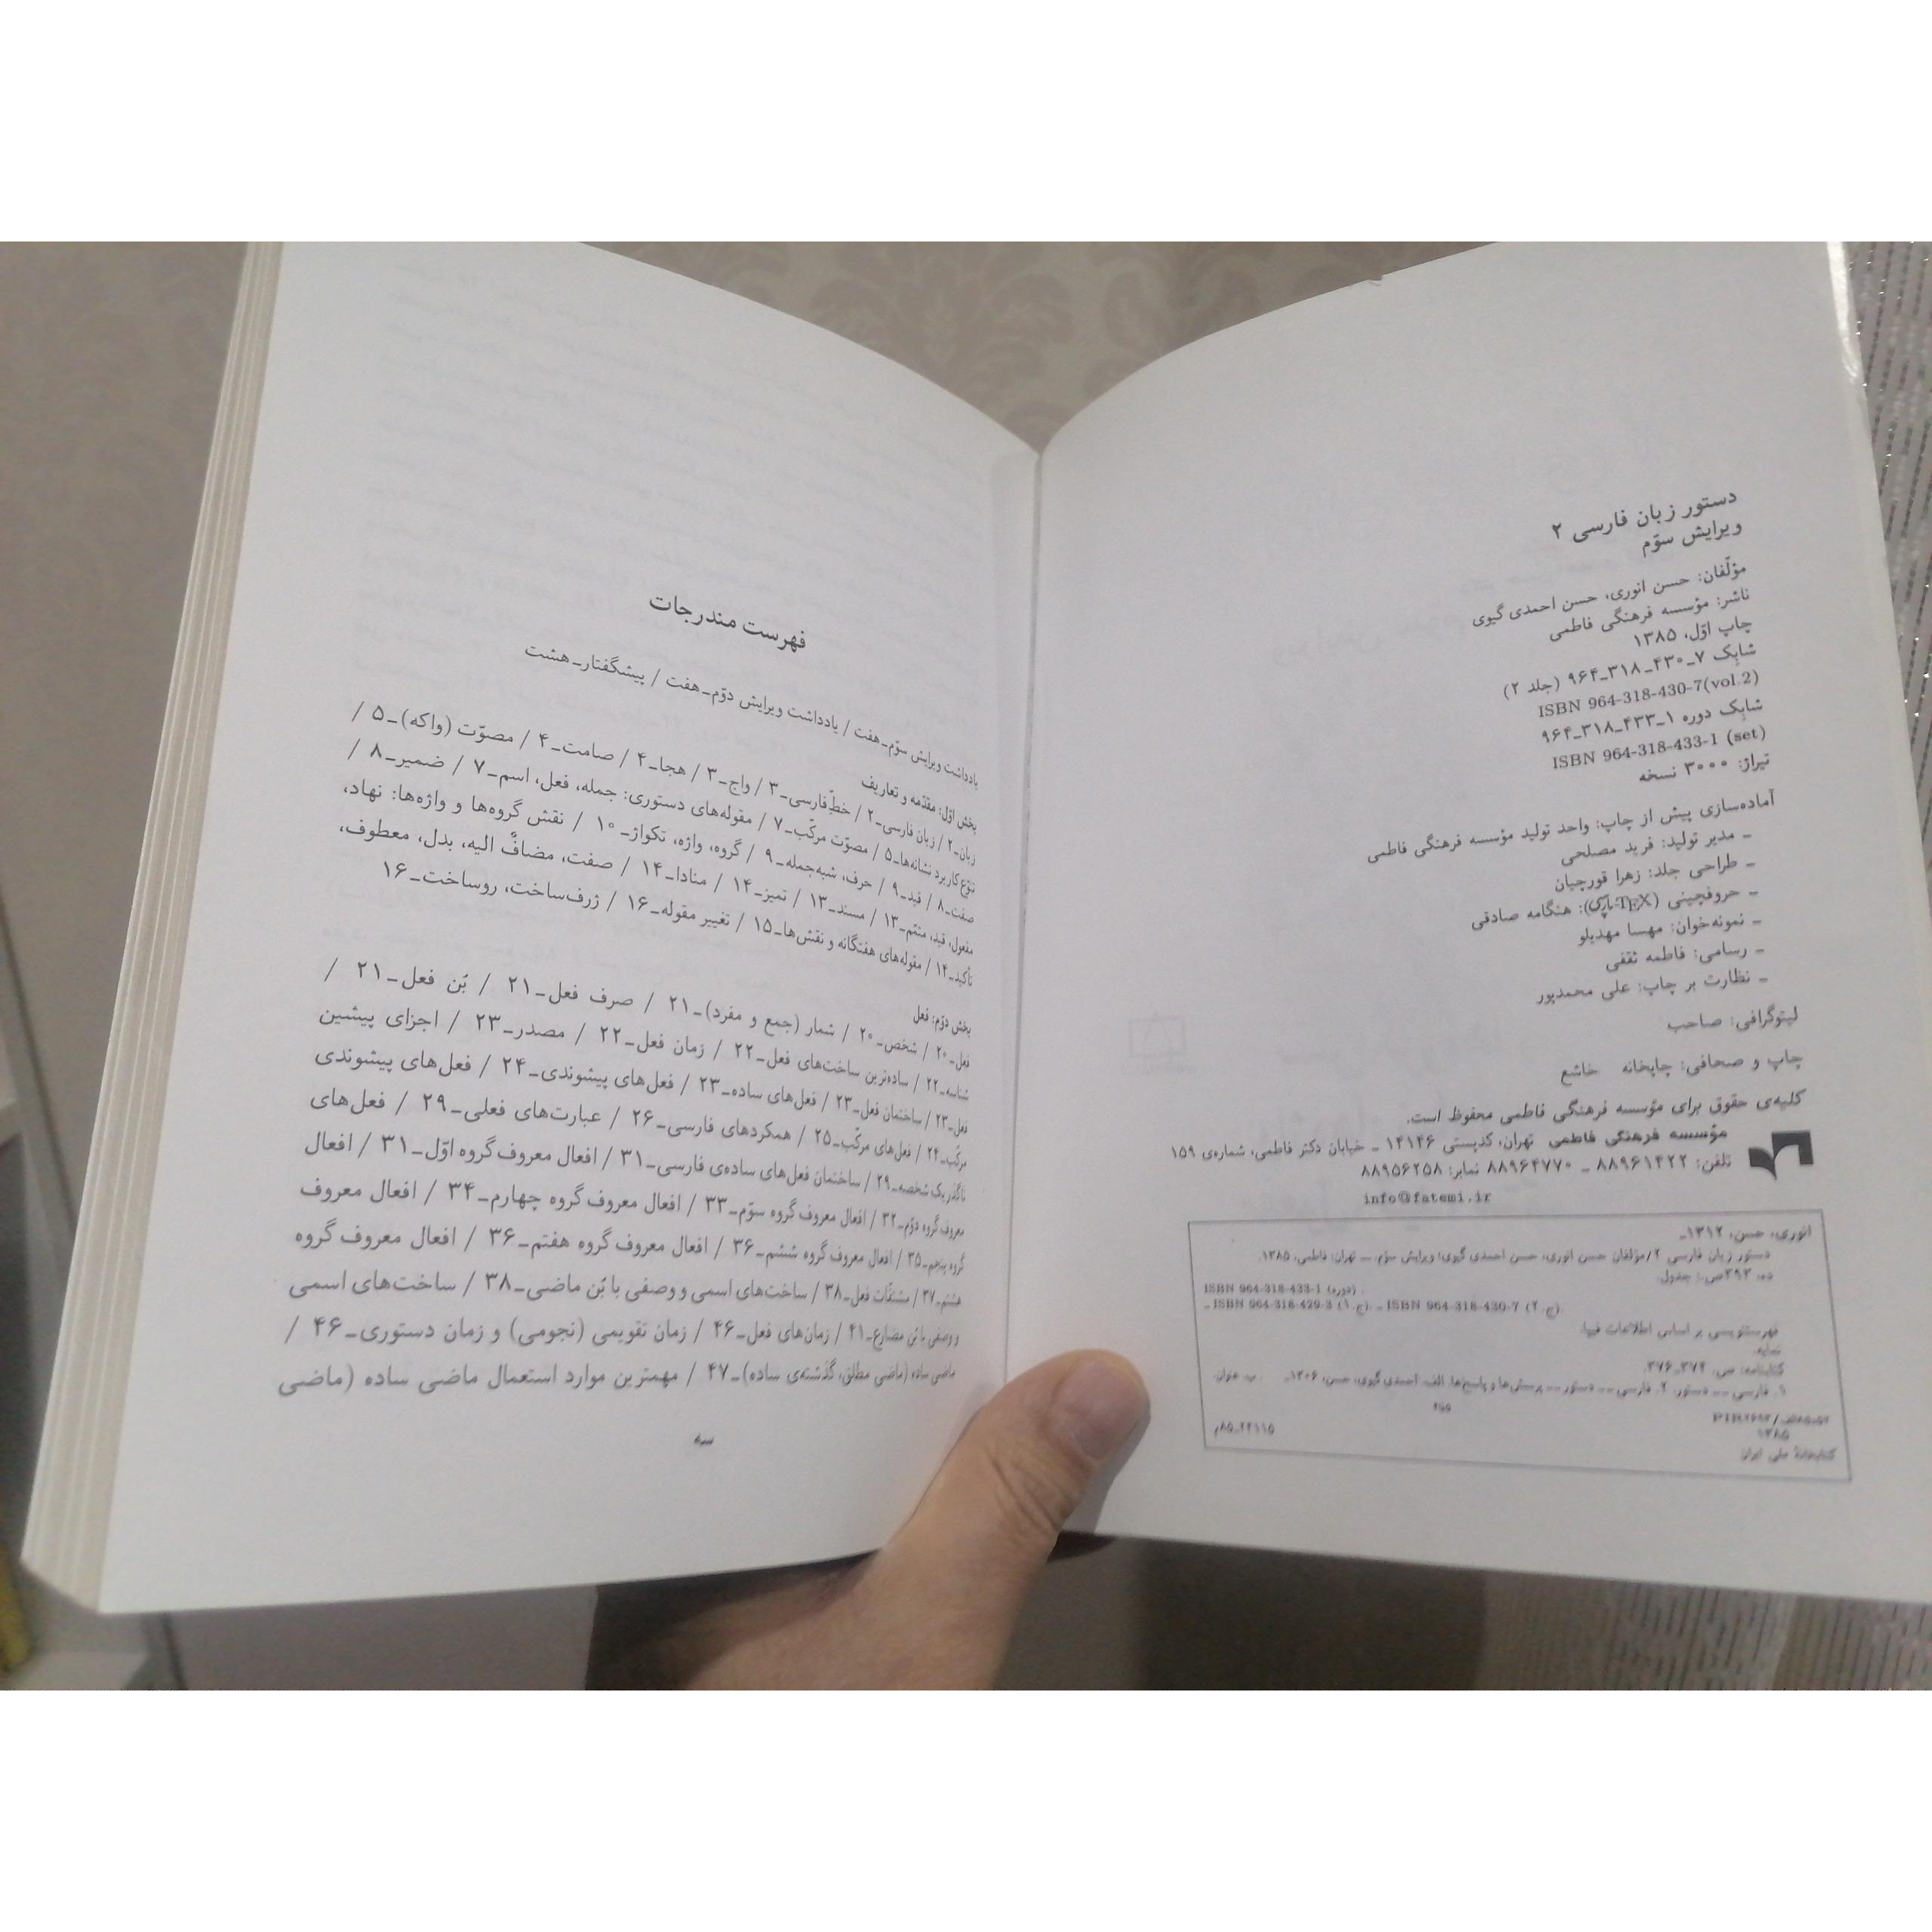 دستور زبان فارسی ۲
ویرایش سوّم
مؤلّفان: حسن انوری، حسن احمدی گیوی
ناشر: مؤسسه فرهنگی فاطمی
چاپ اوّل، ۱۳۸۵
شابک ۷_۴۳۰_۳۱۸_۹۶۴ (جلد ۲)
ISBN 964-318-430-7(vol.2)
شابک دوره ۱_۴۳۳_۳۱۸_۹۶۴
ISBN 964-318-433-1 (set)
تیراژ: ۳۰۰۰ نسخه
آماده‌سازی پیش از چاپ: واحد تولید مؤسسه فرهنگی فاطمی
– مدیر تولید: فرید مصلحی
– طراحی جلد: زهرا قورچیان
– حروفچینی (TEX-پارسی): هنگامه صادقی
– نمونه‌خوان: مهسا مهدیلو
– رسامی: فاطمه ثقفی
– نظارت بر چاپ: علی محمدپور
لیتوگرافی: صاحب
چاپ و صحافی: چاپخانه خاشع
کلیه‌ی حقوق برای مؤسسه فرهنگی فاطمی محفوظ است.
مؤسسه فرهنگی فاطمی تهران، کدپستی ۱۴۱۴۶ – خیابان دکتر فاطمی، شماره‌ی ۱۵۹
تلفن: ۸۸۹۶۱۴۲۲ – ۸۸۹۶۴۷۷۰ نمابر: ۸۸۹۵۶۲۵۸
info@fatemi.ir
انوری، حسن، ۱۳۱۲_
دستور زبان فارسی ۲/مؤلفان حسن انوری، حسن احمدی گیوی؛ ویرایش سوّم. — تهران: فاطمی، ۱۳۸۵.
ده، ۳۹۲ص.: جدول.
ISBN 964-318-433-1 (دوره).
_ ISBN 964-318-429-3 (ج.۱). _ ISBN 964-318-430-7 (ج.۲).
فهرستنویسی بر اساس اطلاعات فیپا.
نمایه.
کتابنامه: ص. ۳۷۴_۳۷۶.
۱. فارسی –– دستور. ۲. فارسی –– دستور –– پرسش‌ها و پاسخ‌ها. الف. احمدی گیوی، حسن، ۱۳۰۶_ . ب. عنوان.
۱۳۸۵
م۸۵_۲۴۱۱۵
کتابخانهٔ ملی ایران
فهرست مندرجات
یادداشت ویرایش سوّم_هفت / یادداشت ویرایش دوّم_هفت / پیشگفتار_هشت
بخش اوّل: مقدّمه و تعاریف
زبان_۲ / زبان فارسی_۲ / خطّ فارسی_۳ / واج_۳ / هجا_۴ / صامت_۴ / مصوّت (واکه)_۵ /
تنوّع کاربرد نشانه‌ها_۵ / مصوّت مرکّب_۷ / مقوله‌های دستوری: جمله، فعل، اسم_۷ / ضمیر_۸ /
صفت_۸ / قید_۹ / حرف، شبه‌جمله_۹ / گروه، واژه، تکواژ_۱۰ / نقش گروه‌ها و واژه‌ها: نهاد،
مفعول، قید، متمّم_۱۳ / مسند_۱۳ / تمیز_۱۴ / منادا_۱۴ / صفت، مضافٌ الیه، بدل، معطوف،
تأکید_۱۴ / مقوله‌های هفتگانه و نقش‌ها_۱۵ / تغییر مقوله_۱۶ / ژرف‌ساخت، روساخت_۱۶
بخش دوّم: فعل
فعل_۲۰ / شخص_۲۰ / شمار (جمع و مفرد)_۲۱ / صرف فعل_۲۱ / بُن فعل_۲۱ /
شناسه_۲۲ / ساده‌ترین ساخت‌های فعل_۲۲ / زمان فعل_۲۲ / مصدر_۲۳ / اجزای پیشین
فعل_۲۳ / ساختمان فعل_۲۳ / فعل‌های ساده_۲۳ / فعل‌های پیشوندی_۲۴ / فعل‌های پیشوندی
مرکّب_۲۴ / فعل‌های مرکّب_۲۵ / همکردهای فارسی_۲۶ / عبارت‌های فعلی_۲۹ / فعل‌های
ناگذر یک شخصه_۲۹ / ساختمان فعل‌های ساده‌ی فارسی_۳۱ / افعال معروف گروه اوّل_۳۱ / افعال
معروف گروه دوّم_۳۲ / افعال معروف گروه سوّم_۳۳ / افعال معروف گروه چهارم_۳۴ / افعال معروف
گروه پنجم_۳۵ / افعال معروف گروه ششم_۳۶ / افعال معروف گروه هفتم_۳۶ / افعال معروف گروه
هشتم_۳۷ / مشتقّات فعل_۳۸ / ساخت‌های اسمی و وصفی با بُن ماضی_۳۸ / ساخت‌های اسمی
و وصفی با بُن مضارع_۴۱ / زمان‌های فعل_۴۶ / زمان تقویمی (نجومی) و زمان دستوری_۴۶ /
ماضی ساده (ماضی مطلق، گذشته‌ی ساده)_۴۷ / مهمترین موارد استعمال ماضی ساده (ماضی
سه